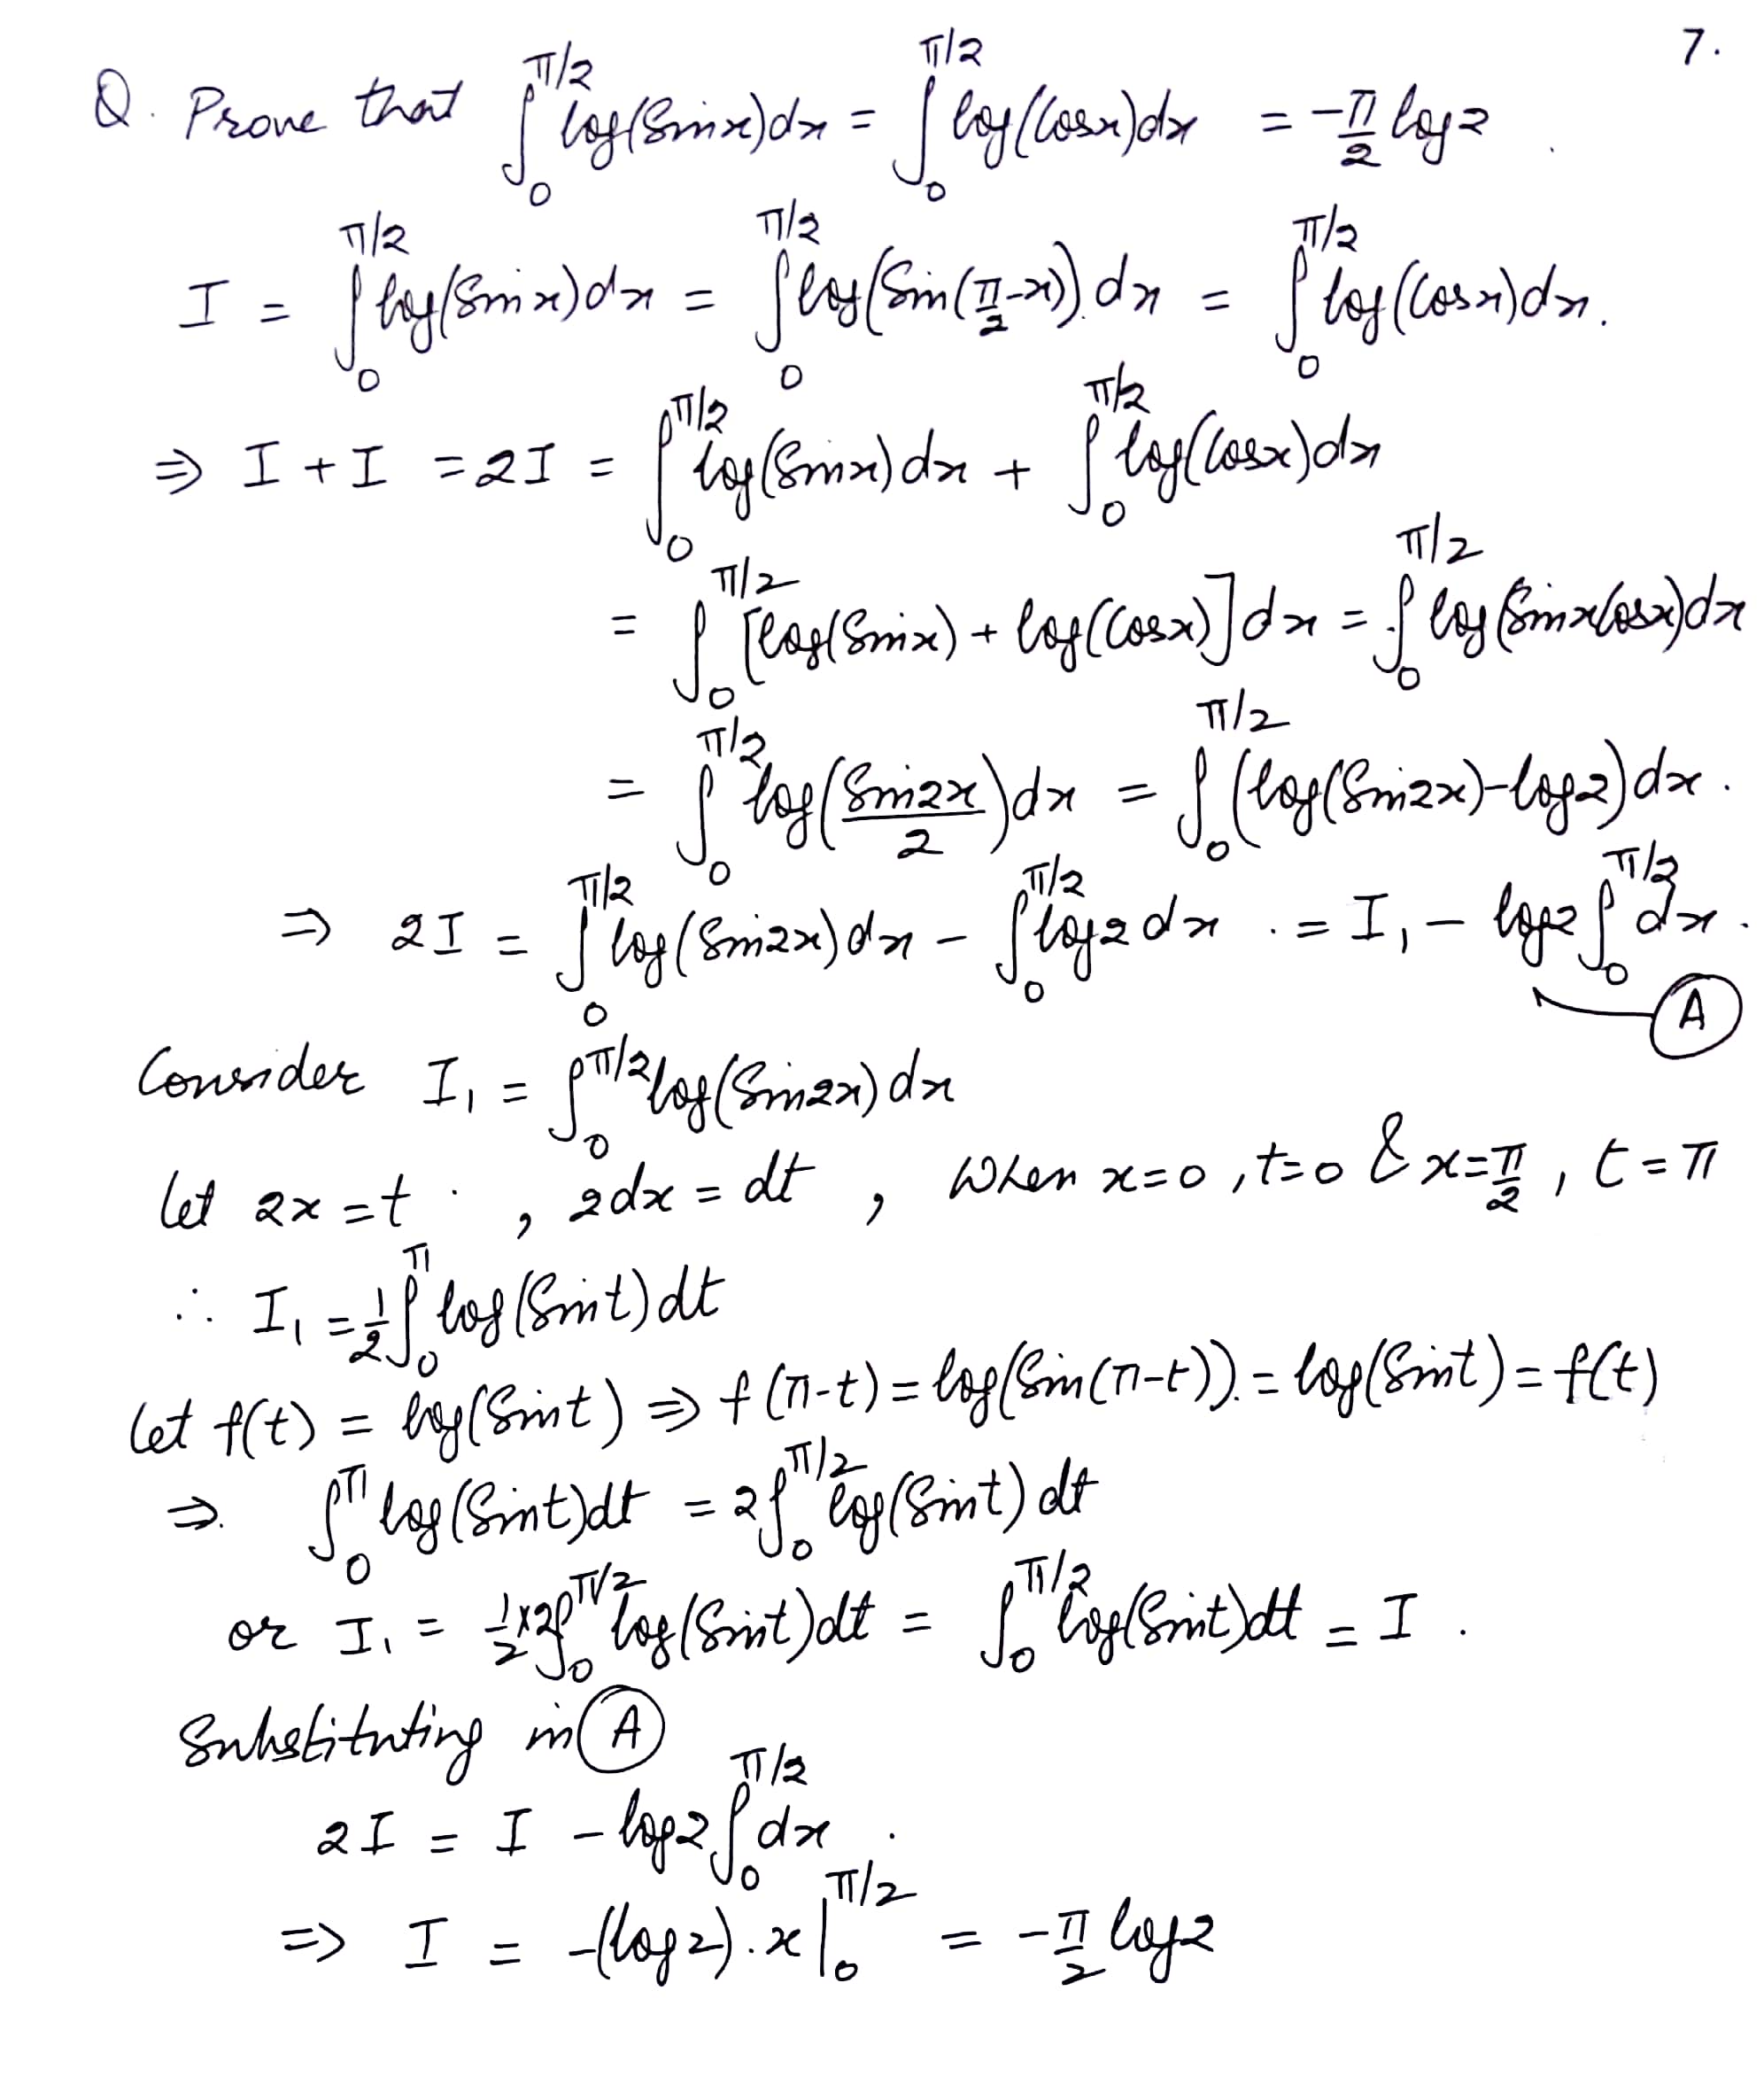 7.
Q. Prove that ∫₀^{π/2} log(Sinx)dx = ∫₀^{π/2} log(Cosx)dx = -π/2 log2.
I = ∫₀^{π/2} log(Sinx)dx = ∫₀^{π/2} log(Sin(π/2-x)).dx = ∫₀^{π/2} log(Cosx)dx.
⇒ I + I = 2I = ∫₀^{π/2} log(Sinx)dx + ∫₀^{π/2} log(Cosx)dx
= ∫₀^{π/2} [log(Sinx) + log(Cosx)]dx = ∫₀^{π/2} log(SinxCosx)dx
= ∫₀^{π/2} log(Sin2x/2)dx = ∫₀^{π/2} (log(Sin2x)-log2)dx.
⇒ 2I = ∫₀^{π/2} log(Sin2x)dx - ∫₀^{π/2} log2 dx . = I₁ - log2 ∫₀^{π/2} dx.
A
Consider I₁ = ∫₀^{π/2} log(Sin2x)dx
Let 2x = t , 2dx = dt , When x=0, t=0 & x=π/2, t=π
∴ I₁ = 1/2 ∫₀^{π} log(Sint)dt
Let f(t) = log(Sint) ⇒ f(π-t) = log(Sin(π-t)). = log(Sint) = f(t)
⇒ ∫₀^{π} log(Sint)dt = 2∫₀^{π/2} log(Sint)dt
or I₁ = 1/2 × 2∫₀^{π/2} log(Sint)dt = ∫₀^{π/2} log(Sint)dt = I.
Substituting in A
2I = I - log2 ∫₀^{π/2} dx.
⇒ I = -(log2).x|₀^{π/2} = -π/2 log2